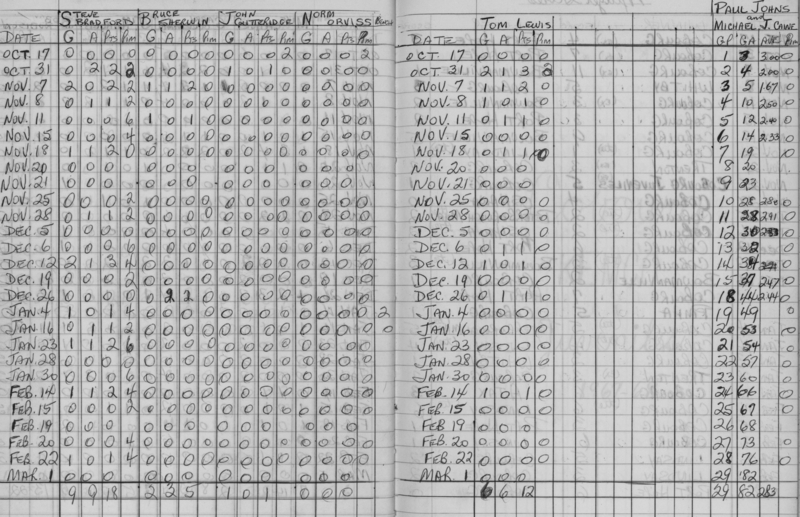 STEVE BRADFORD BRUCE SHERWIN JOHN GUTTERIDGE NORM ORVISS TOM LEWIS PAUL JOHNS and MICHAEL J. CANE
DATE G A Pts P.m G A Pts P.m G A Pts P.m G A Pts P.m DATE G A Pts P.m GP GA
OCT. 17 0 0 0 0 0 0 0 0 0 0 0 2 0 0 0 2 OCT. 17 0 0 0 0 1 3 3.00 0
OCT. 31 0 2 2 2 0 0 0 0 1 0 1 0 0 0 0 0 OCT. 31 2 1 3 2 2 4 2.00 0
NOV. 7 2 0 2 2 1 1 2 0 0 0 0 0 0 0 0 0 NOV. 7 1 1 2 0 3 5 1.67 0
NOV. 8 0 1 1 2 0 0 0 0 0 0 0 0 0 0 0 0 NOV. 8 1 0 1 0 4 10 2.50 0
NOV. 11 0 0 0 6 1 0 1 0 0 0 0 0 0 0 0 0 NOV. 11 0 1 1 0 5 12 2.40 0
NOV. 15 0 0 0 4 0 0 0 0 0 0 0 0 0 0 0 0 NOV. 15 0 0 0 0 6 14 2.33 0
NOV. 18 1 1 2 0 0 0 0 0 0 0 0 0 0 0 0 0 NOV. 18 0 1 1 0 7 19 0
NOV. 20 0 0 0 0 0 0 0 0 0 0 0 0 NOV. 20 0 0 0 8 20
NOV. 21 0 0 0 0 0 0 0 0 0 0 0 0 NOV. 21 0 0 0 9 23
NOV. 25 0 0 0 2 0 0 0 0 0 0 0 0 0 0 0 0 NOV. 25 0 0 0 0 10 28 2.80 0
NOV. 28 0 1 1 2 0 0 0 0 0 0 0 0 0 0 0 0 NOV. 28 0 0 0 0 11 2.91 0
DEC. 5 0 0 0 0 0 0 0 0 0 0 0 0 0 0 0 0 DEC. 5 0 0 0 0 12 0
DEC. 6 0 0 0 6 0 0 0 0 0 0 0 0 0 0 0 0 DEC. 6 0 1 1 0 13 32 0
DEC. 12 2 1 3 4 0 0 0 0 0 0 0 0 0 0 0 0 DEC. 12 1 0 1 0 14 34 0
DEC. 19 0 0 0 2 0 0 0 0 0 0 0 0 0 0 0 0 DEC. 19 0 0 0 0 15 37 2.47 0
DEC. 26 0 0 0 0 0 2 2 0 0 0 0 0 0 0 0 0 DEC. 26 0 1 1 0 18 44 2.44 0
JAN. 4 1 0 1 4 0 0 0 0 0 0 0 0 0 0 0 0 2 JAN. 4 0 0 0 0 19 49 0
JAN. 16 0 1 1 2 0 0 0 0 0 0 0 0 0 0 0 0 0 JAN. 16 0 0 0 0 20 53 0
JAN. 23 1 1 2 6 0 0 0 0 0 0 0 0 0 0 0 0 JAN. 23 0 0 0 0 21 54 0
JAN. 28 0 0 0 0 0 0 0 0 0 0 0 0 0 0 0 0 JAN. 28 0 0 0 0 22 57 0
JAN. 30 0 0 0 0 0 0 0 0 0 0 0 0 0 0 0 0 JAN. 30 0 0 0 0 23 60 0
FEB. 14 1 1 2 4 0 0 0 0 0 0 0 0 0 0 0 0 FEB. 14 1 0 1 0 24 66 0
FEB. 15 0 0 0 2 0 0 0 0 0 0 0 0 0 0 0 0 FEB. 15 0 0 0 0 25 67 0
FEB. 19 0 0 0 0 0 0 0 0 0 0 0 0 FEB. 19 0 0 0 26 68
FEB. 20 0 0 0 4 0 0 0 0 0 0 0 0 0 0 0 0 FEB. 20 0 0 0 0 27 73 0
FEB. 22 1 0 1 4 0 0 0 0 0 0 0 0 0 0 0 0 FEB. 22 0 0 0 0 28 76 0
MAR. 1 0 0 0 0 0 0 0 0 0 0 0 0 MAR. 1 0 0 0 29 82
9 9 18 2 3 5 1 0 1 0 0 0 6 6 12 29 82 2.83